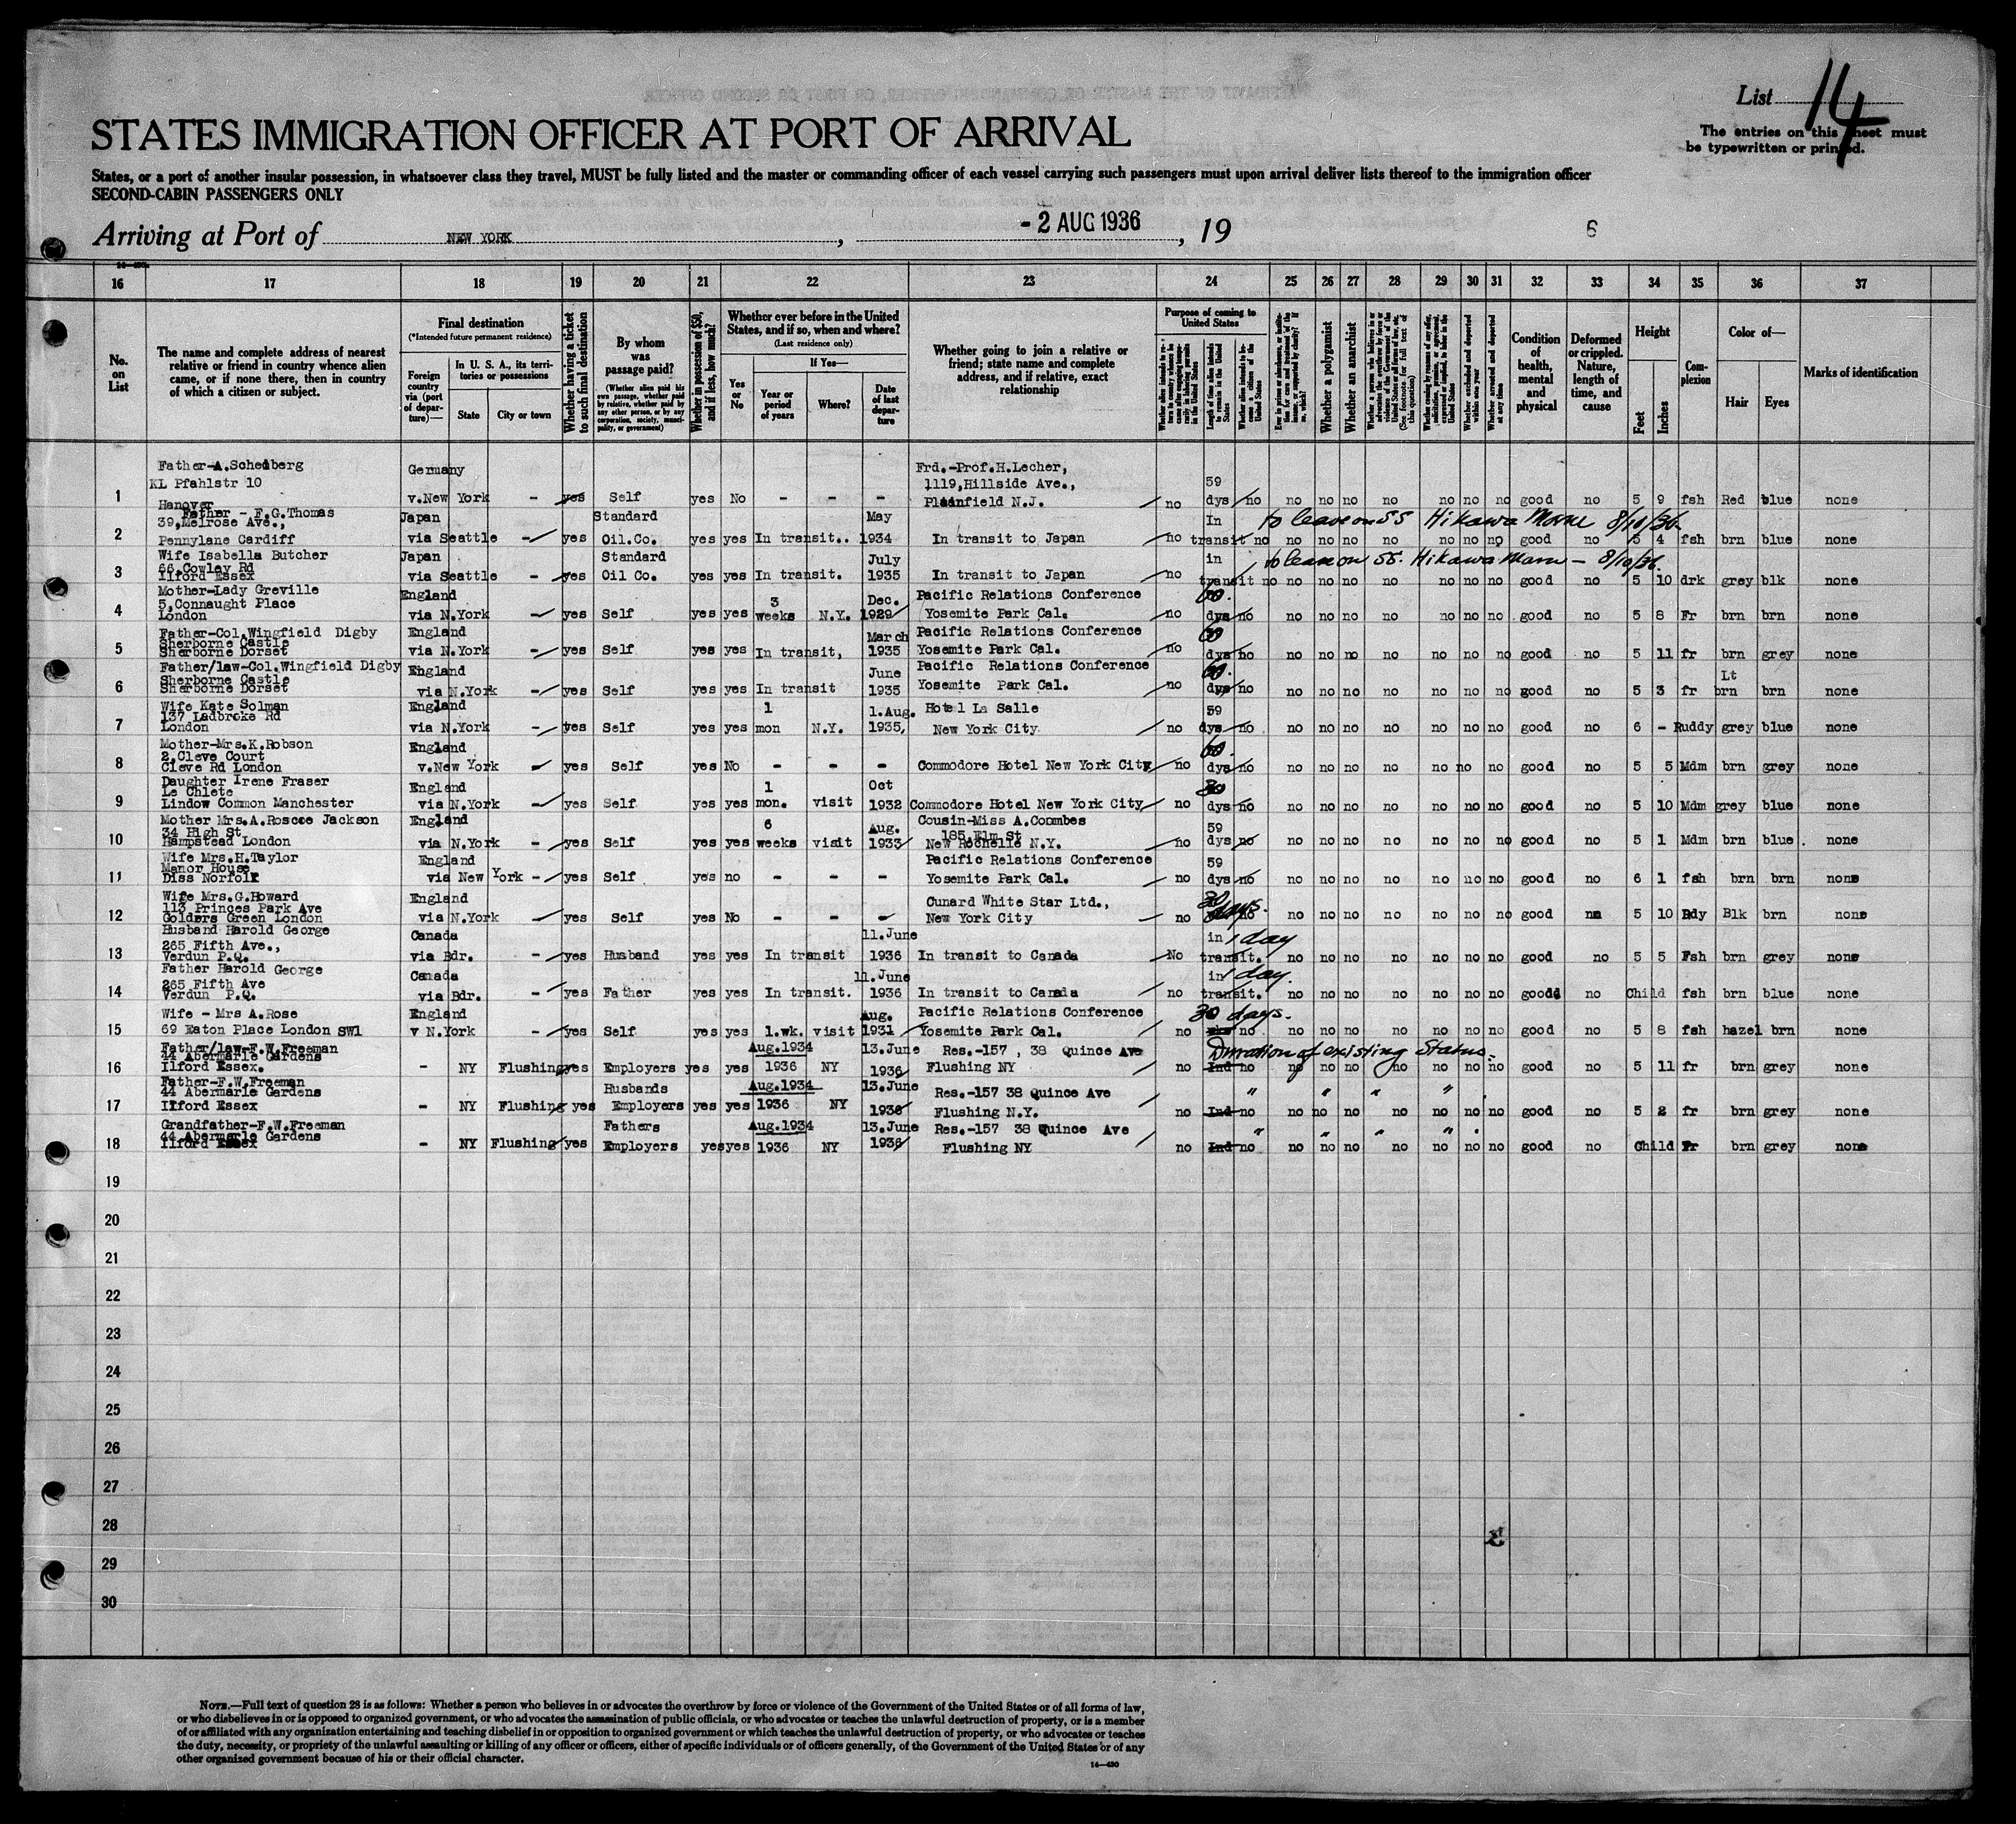 List 14
The entries on this sheet must
be typewritten or printed.
STATES IMMIGRATION OFFICER AT PORT OF ARRIVAL
States, or a port of another insular possession, in whatsoever class they travel, MUST be fully listed and the master or commanding officer of each vessel carrying such passengers must upon arrival deliver lists thereof to the immigration officer
SECOND-CABIN PASSENGERS ONLY
Arriving at Port of NEW YORK, - 2 AUG 1936, 19 6
16 17 18 19 20 21 22 23 24 25 26 27 28 29 30 31 32 33 34 35 36 37
No. on List
The name and complete address of nearest
relative or friend in country whence alien
came, or if none there, then in country
of which a citizen or subject.
Final destination
(*Intended future permanent residence)
Foreign country via (port of departure)—
In U. S. A., its territories or possessions
State City or town
Whether having a ticket to such final destination
By whom was passage paid?
(Whether alien paid his own passage, whether paid by relative, whether paid by any other person, or by any corporation, society, municipality, or government)
Whether in possession of $50, and if less, how much?
Whether ever before in the United States, and if so, when and where?
(Last residence only)
Yes or No
If Yes—
Year or period of years
Where?
Date of last departure
Whether going to join a relative or
friend; state name and complete
address, and if relative, exact
relationship
Purpose of coming to United States
Whether a polygamist
Whether an anarchist
Condition of health, mental and physical
Deformed or crippled. Nature, length of time, and cause
Height
Feet Inches
Complexion
Color of—
Hair Eyes
Marks of identification
1 Father-A.Schedberg KL Pfahlstr 10 Hanover Germany v.New York - yes Self yes No - - - Frd.-Prof.H.Lecher, 1119,Hillside Ave., Plainfield N.J. no 59 dys no no no no no no no no good no 5 9 fsh Red blue none
2 Father - F.G.Thomas 39,Melrose Ave., Pennylane Cardiff Japan via Seattle - yes Standard Oil.Co. yes yes In transit.. May 1934 In transit to Japan no In transit no to leave on SS Hikawa Maru 8/10/36. no no no no no no no good no 5 4 fsh brn blue none
3 Wife Isabella Butcher 66,Cowley Rd Ilford Essex Japan via Seattle - yes Standard Oil Co. yes yes In transit. July 1935 In transit to Japan no in transit no to leave on SS. Hikawa Maru - 8/10/36. no no no no no no no good no 5 10 drk grey blk none
4 Mother-Lady Greville 5,Connaught Place London England via N.York - yes Self yes yes 3 weeks N.Y. Dec. 1929 Pacific Relations Conference Yosemite Park Cal. no 60. dys no no no no no no no no good no 5 8 Fr brn brn none
5 Father-Col.Wingfield Digby Sherborne Castle Sherborne Dorset England via N.York - yes Self yes yes In transit, March 1935 Pacific Relations Conference Yosemite Park Cal. no 60 dys no no no no no no no no good no 5 11 fr brn grey none
6 Father/law-Col.Wingfield Digby Sherborne Castle Sherborne Dorset England via N.York - yes Self yes yes In transit June 1935 Pacific Relations Conference Yosemite Park Cal. no 60. dys no no no no no no no no good no 5 3 fr Lt brn brn none
7 Wife Kate Solman 137 Ladbroke Rd London England via N.York - yes Self yes yes 1 mon N.Y. 1.Aug. 1935, Hotel La Salle New York City no 59 dys no no no no no no no no good no 6 - Ruddy grey blue none
8 Mother-Mrs.K.Robson 2,Cleve Court Cleve Rd London England v.New York - yes Self yes No - - - Commodore Hotel New York City no 60. dys no no no no no no no no good no 5 5 Mdm brn grey none
9 Daughter Irene Fraser Le Chlete Lindow Common Manchester England via N.York - yes Self yes yes 1 mon. visit Oct 1932 Commodore Hotel New York City no 30 dys no no no no no no no no good no 5 10 Mdm grey blue none
10 Mother Mrs.A.Roscoe Jackson 34 High St Hampstead London England via N.York - yes Self yes yes 6 weeks visit Aug. 1933 Cousin-Miss A.Coombes 185,Elm St New Rochelle N.Y. no 59 dys no no no no no no no no good no 5 1 Mdm brn blue none
11 Wife Mrs.H.Taylor Manor House Diss Norfolk England via New York - yes Self yes no - - - Pacific Relations Conference Yosemite Park Cal. no 59 dys no no no no no no no no good no 6 1 fsh brn brn none
12 Wife Mrs.G.Howard 113 Princes Park Ave Golders Green London England via N.York - yes Self yes No - - - Cunard White Star Ltd., New York City no 30 days. no no no no no no no good no 5 10 Rdy Blk brn none
13 Husband Harold George 265 Fifth Ave., Verdun P.Q. Canada via Bdr. - yes Husband yes yes In transit 11.June 1936 In transit to Canada No in transit. 1 day no no no no no no no good no 5 5 Fsh brn grey none
14 Father Harold George 265 Fifth Ave Verdun P.Q. Canada via Bdr. - yes Father yes yes In transit. 11.June 1936 In transit to Canada no in transit. 1 day. no no no no no no no good no Child fsh brn blue none
15 Wife - Mrs A.Rose 69 Eaton Place London SW1 England v N.York - yes Self yes yes 1.wk. visit Aug. 1931 Pacific Relations Conference Yosemite Park Cal. no 30 days. no no no no no no no no good no 5 8 fsh hazel brn none
16 Father/law-F.W.Freeman 44 Abermarle Gardens Ilford Essex. - NY Flushing yes Employers yes yes Aug.1934 1936 NY 13.June 1936 Res.-157, 38 Quince Ave Flushing NY no Ind no Duration of existing Status. no no no no no no no good no 5 11 fr brn grey none
17 Father-F.W.Freeman 44 Abermarle Gardens Ilford Essex - NY Flushing yes Husbands Employers yes yes Aug.1934 1936 NY 13.June 1936 Res.-157 38 Quince Ave Flushing N.Y. no Ind no " " " " no no no no no no no good no 5 2 fr brn grey none
18 Grandfather-F.W.Freeman 44 Abermarle Gardens Ilford Essex - NY Flushing yes Fathers Employers yes yes Aug.1934 1936 NY 13.June 1936 Res.-157 38 Quince Ave Flushing NY no Ind no " " " " no no no no no no no good no Child Fr brn grey none
19
20
21
22
23
24
25
26
27
28
29
30
NOTE.—Full text of question 28 is as follows: Whether a person who believes in or advocates the overthrow by force or violence of the Government of the United States or of all forms of law,
or who disbelieves in or is opposed to organized government, or who advocates the assassination of public officials, or who advocates or teaches the unlawful destruction of property, or is a member
of or affiliated with any organization entertaining and teaching disbelief in or opposition to organized government or which teaches the unlawful destruction of property, or who advocates or teaches
the duty, necessity, or propriety of the unlawful assaulting or killing of any officer or officers, either of specific individuals or of officers generally, of the Government of the United States or of any
other organized government because of his or their official character.
14—430